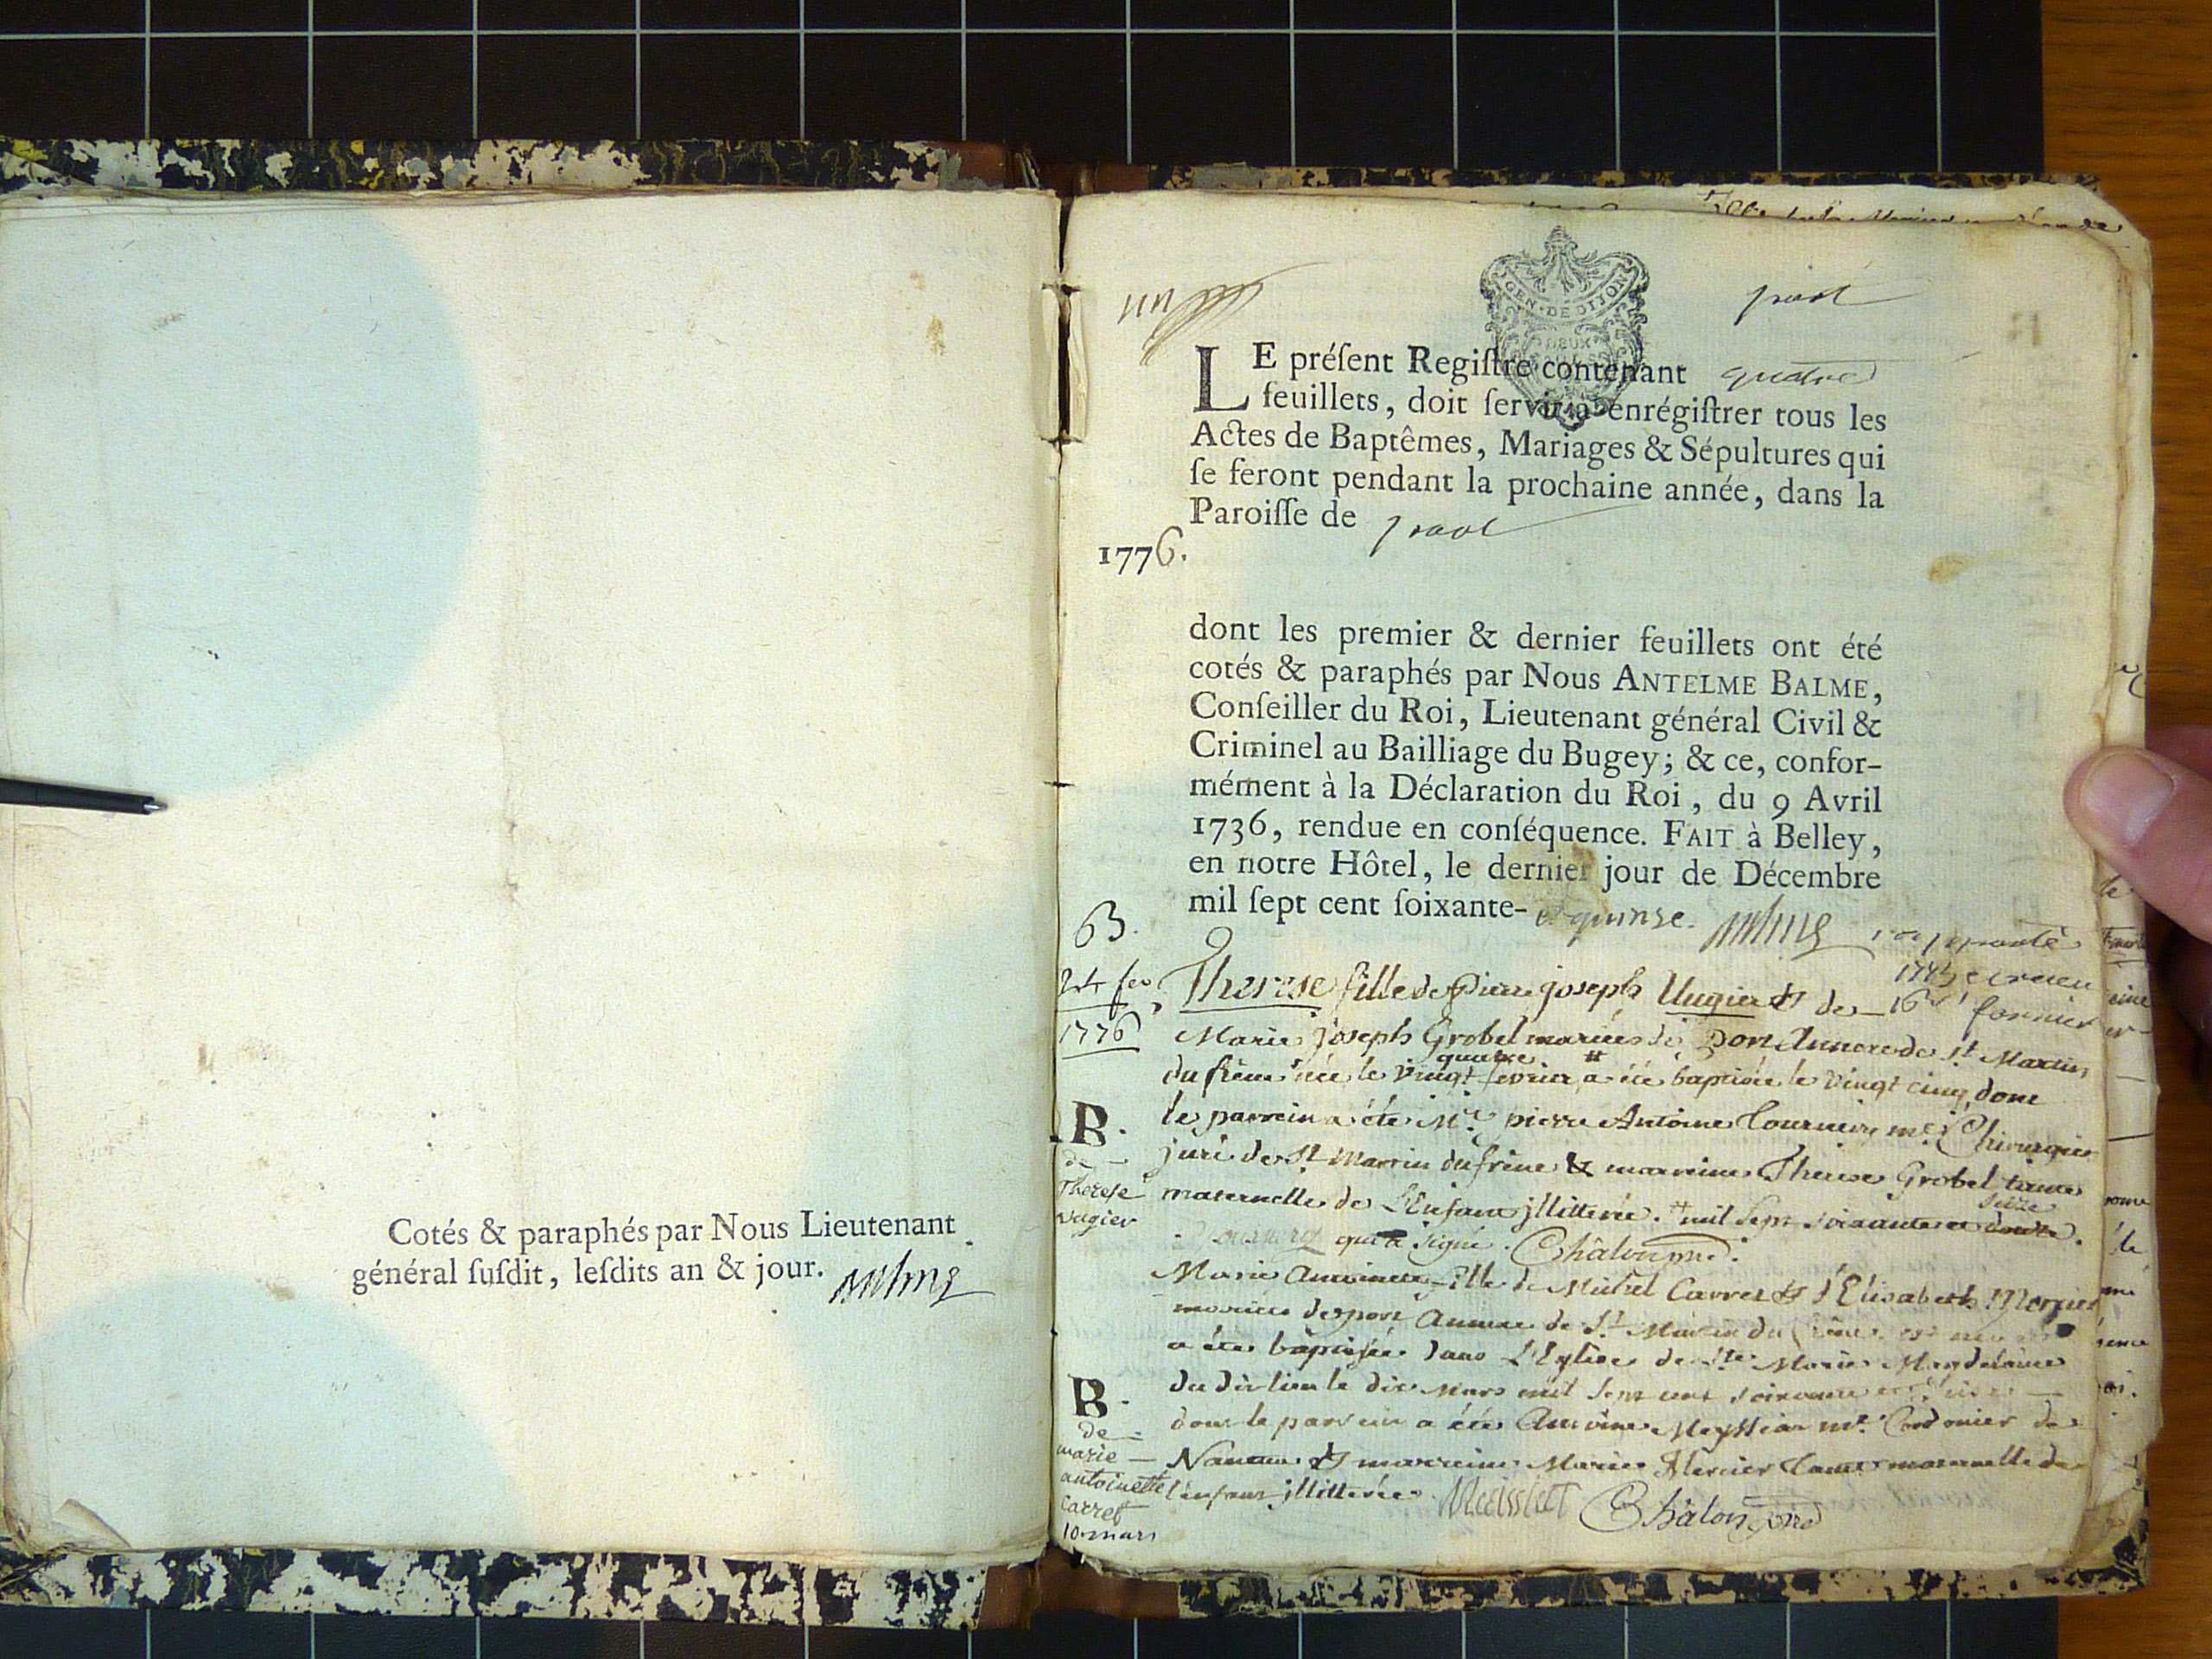 Cotés & paraphés par Nous Lieutenant
général ſuſdit, leſdits an & jour.
un
GEN·DE DIJON
DEUX
port
LE préſent Regiſtre contenant quatre
feuillets, doit ſervir à enrégiſtrer tous les
Actes de Baptêmes, Mariages & Sépultures qui
ſe feront pendant la prochaine année, dans la
Paroiſſe de port
1776.
dont les premier & dernier feuillets ont été
cotés & paraphés par Nous ANTELME BALME,
Conſeiller du Roi, Lieutenant général Civil &
Criminel au Bailliage du Bugey; & ce, confor-
mément à la Déclaration du Roi, du 9 Avril
1736, rendue en conſéquence. FAIT à Belley,
en notre Hôtel, le dernier jour de Décembre
mil ſept cent ſoixante- et quinse.
63.
24 fev
1776
Therese fille de Pierre joseph Vugier & de
Marie joseph Grobel mariés de Port Annexe de St Martin
du frêne née le vingt quatre fevrier # a été baptisée le vingt cinq dont
B. le parrein a été Mre pierre Antoine Tournier me Chirurgien
de juré de St Martin du frêne & marreine Therese Grobel tante
Therese maternelle de L'Enfant jllitterée. # mil sept soixante et douze seize.
Vugier
qui a signé. Châlon
Marie Antoinette fille de Michel Carret & d'Elisabeth Mercier
mariés de port Annexe de St Martin du frêne est née et
a été baptisée dans L'Eglise de Ste Marie Magdelaine
B. du dit lieu le dix Mars mil sept cent soixante et seize
de dont le parrein a été Antoine Meyssiat me Cordonier de
marie Nantua & marreine Marie Mercier tante maternelle de
antoinette l'enfant jllitterée. Meissiat Châlon
carret
10 mars